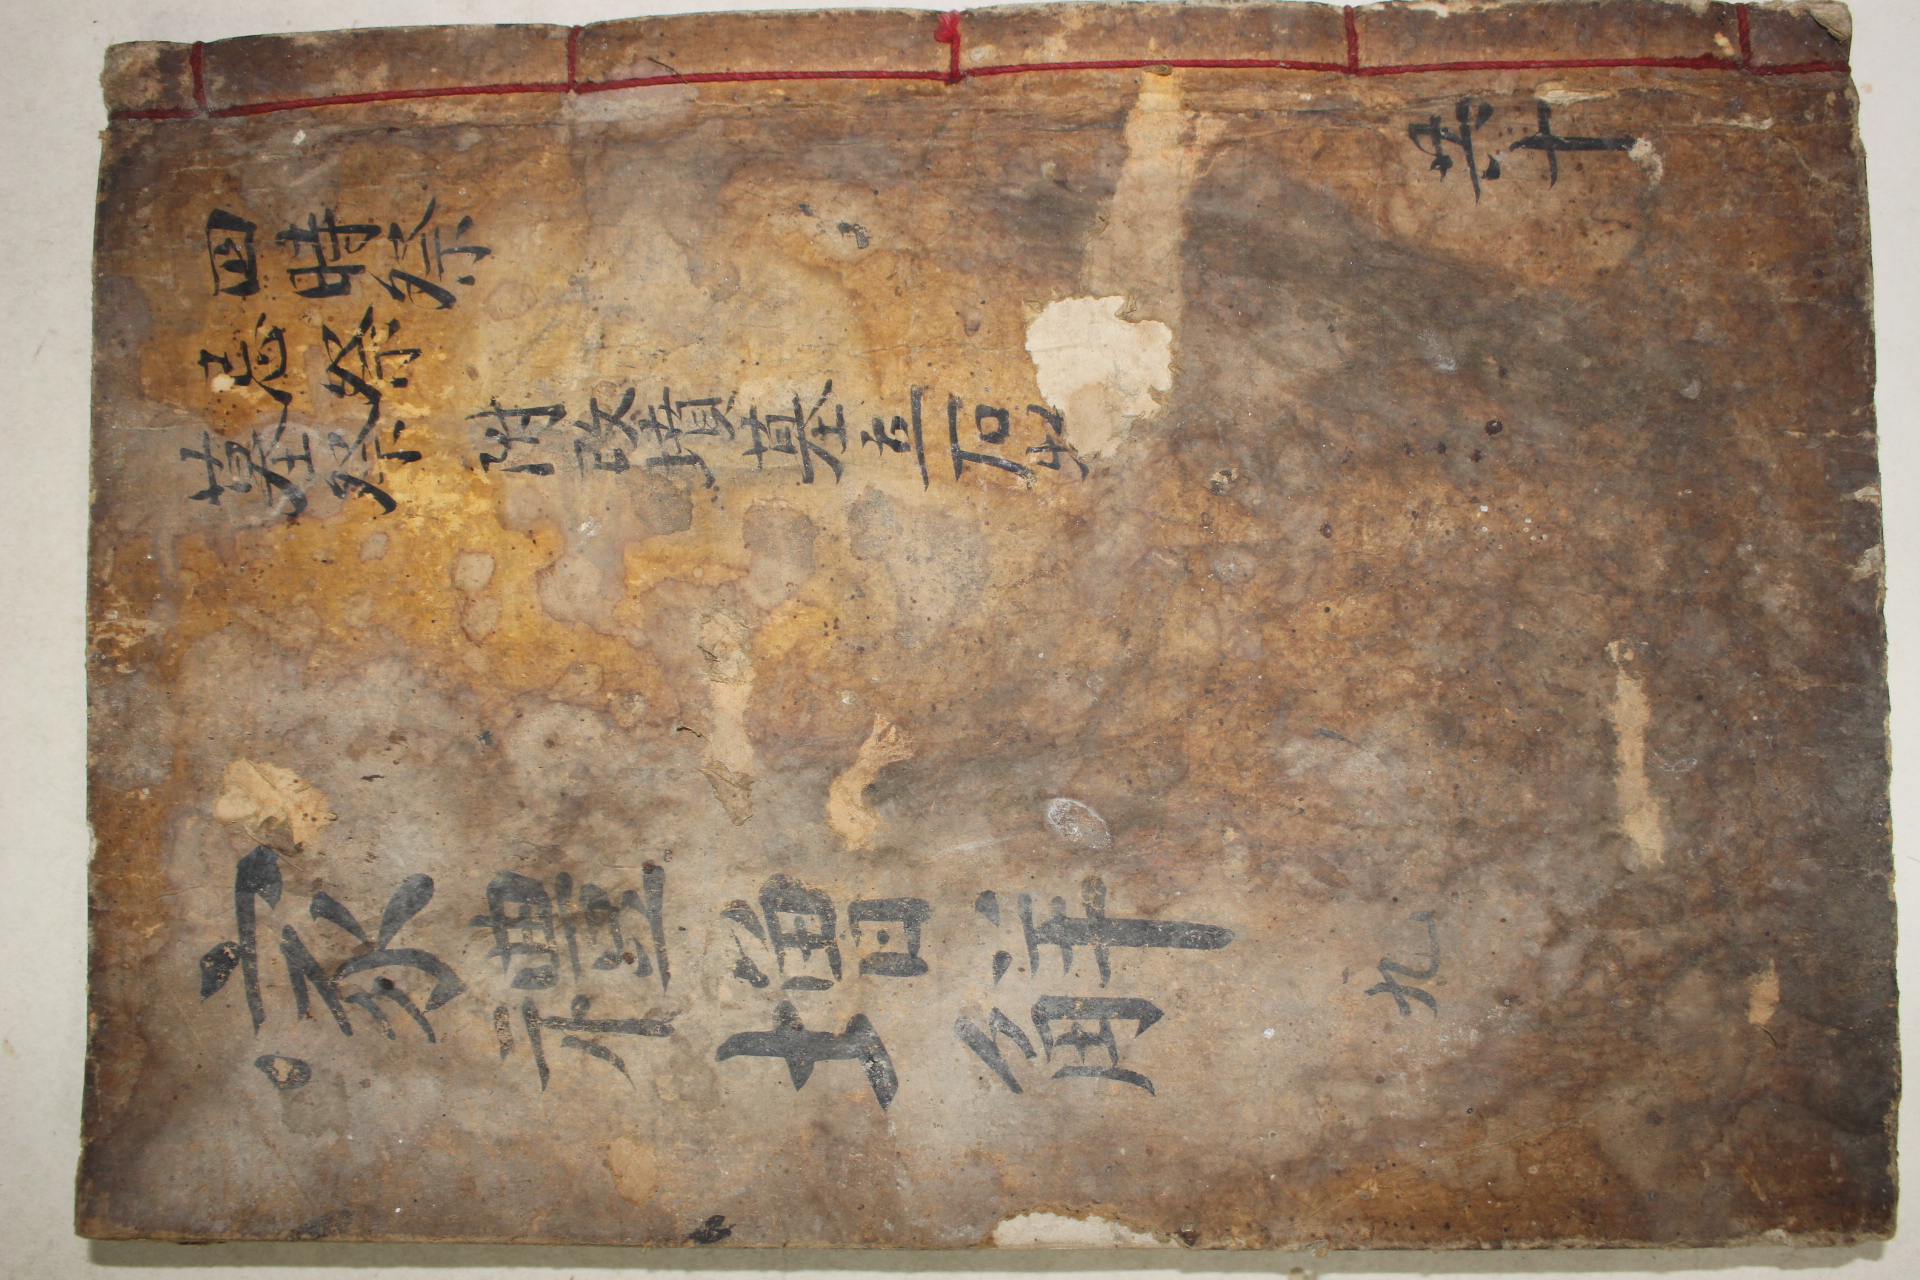 共十
四時祭
忌祭
墓祭 附改墳墓立石
家禮增解 九